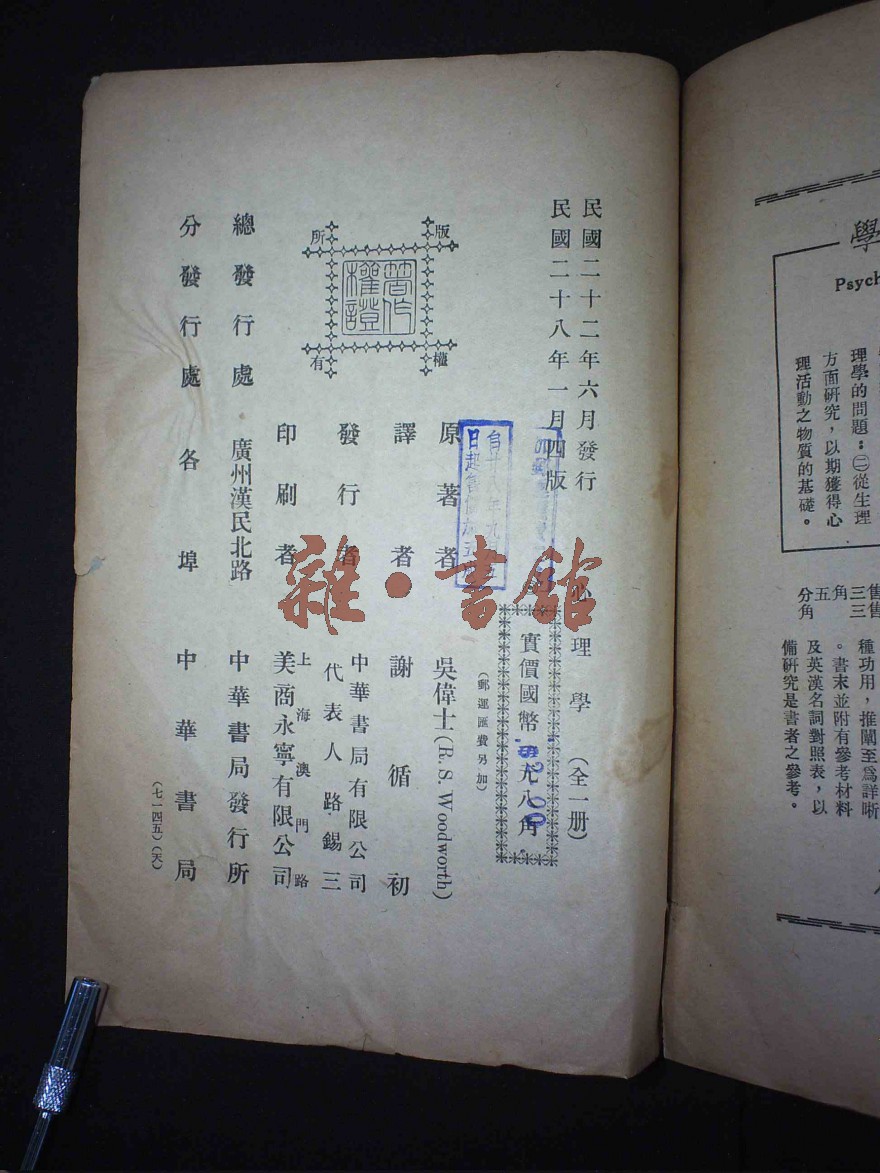 民國二十二年六月發行
民國二十八年一月四版
心理學（全一册）
實價國幣 元八角
$2.00
（郵運匯費另加）
原著者 吳偉士(R. S. Woodworth)
譯者 謝循初
發行者 中華書局有限公司
代表人 路錫三
印刷者 上海澳門路
美商永寧有限公司
總發行處 廣州漢民北路 中華書局發行所
分發行處 各埠中華書局
（七一四五）（天）
版權所有
著作權證
雜·書館
學
Psych
理學的問題：㈡從生理
方面研究，以期獲得心
理活動之物質的基礎。
種功用，推闡至爲詳晰
。書末並附有參考材料
及英漢名詞對照表，以
備研究是書者之參考。